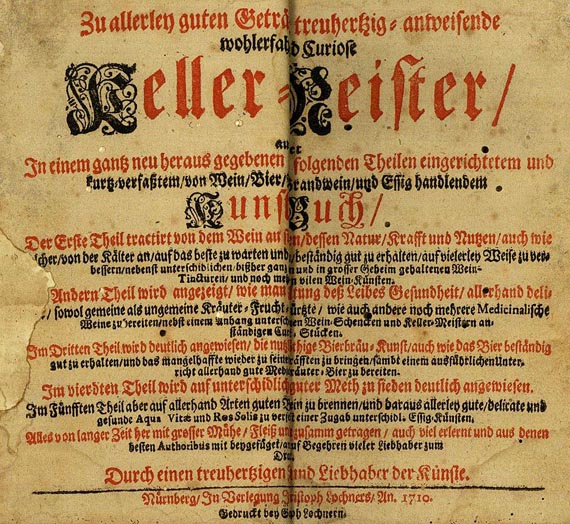 Zu allerley guten Geträ treuhertzig-anweisende
wohlerfah d Curiose
Keller-Meister/
In einem gantz neu heraus gegebenen folgenden Theilen eingerichtetem und
kurtz-verfaßtem/von Wein/Bier/Brandwein/und Essig handlendem
Kunst Buch/
Der Erste Theil tractirt von dem Wein an /dessen Natur/Krafft und Nutzen/auch wie
cher/von der Kälter an/auf das beste zu warten und/beständig gut zu erhalten/auf vielerley Weise zu ver-
bessern/nebenst unterschidlichen/bißher gan und in grosser Geheim gehaltenen Wein-
Tincturen/und noch meh vilen Wein-Künsten.
Andern Theil wird angezeigt/wie man ung deß Leibes Gesundheit/allerhand deli-
/sowol gemeine als ungemeine Kräuter-Frucht- ürtzte/wie auch andere noch mehrere Medicinalische
Weine zu bereiten/nebst einem Anhang untersch Wein-Schencken und Keller-Meistern an-
ständigen Stücken.
Im Dritten Theil wird deutlich angewiesen/die nu hige Bierbräu-Kunst/auch wie das Bier beständig
gut zu erhalten/und das mangelhaffte wieder zu sein räfften zu bringen/samt einem ausführlichen Unter-
richt allerhand gute Med räuter-Bier zu bereiten.
Im vierdten Theil wird auf unterschidlich guter Meth zu sieden deutlich angewiesen.
Im Fünfften Theil aber auf allerhand Arten guten ein zu brennen/und daraus allerley gute/delicate und
gesunde Aqua Vitæ und Ros Solis zu verf einer Zugab unterschidl. Essig-Künsten.
Alles von langer Zeit her mit grosser Mühe/Fleiß un zusamm getragen/auch viel erlernt und aus denen
besten Authoribus mit beygefüget/auf Begehren vieler Liebhaber zum
Dru
Durch einen treuhertzigen und Liebhaber der Künste.
Nürnberg/In Verlegung ristoph Lochners/An. 1710.
Gedruckt bey ph Lochnern.